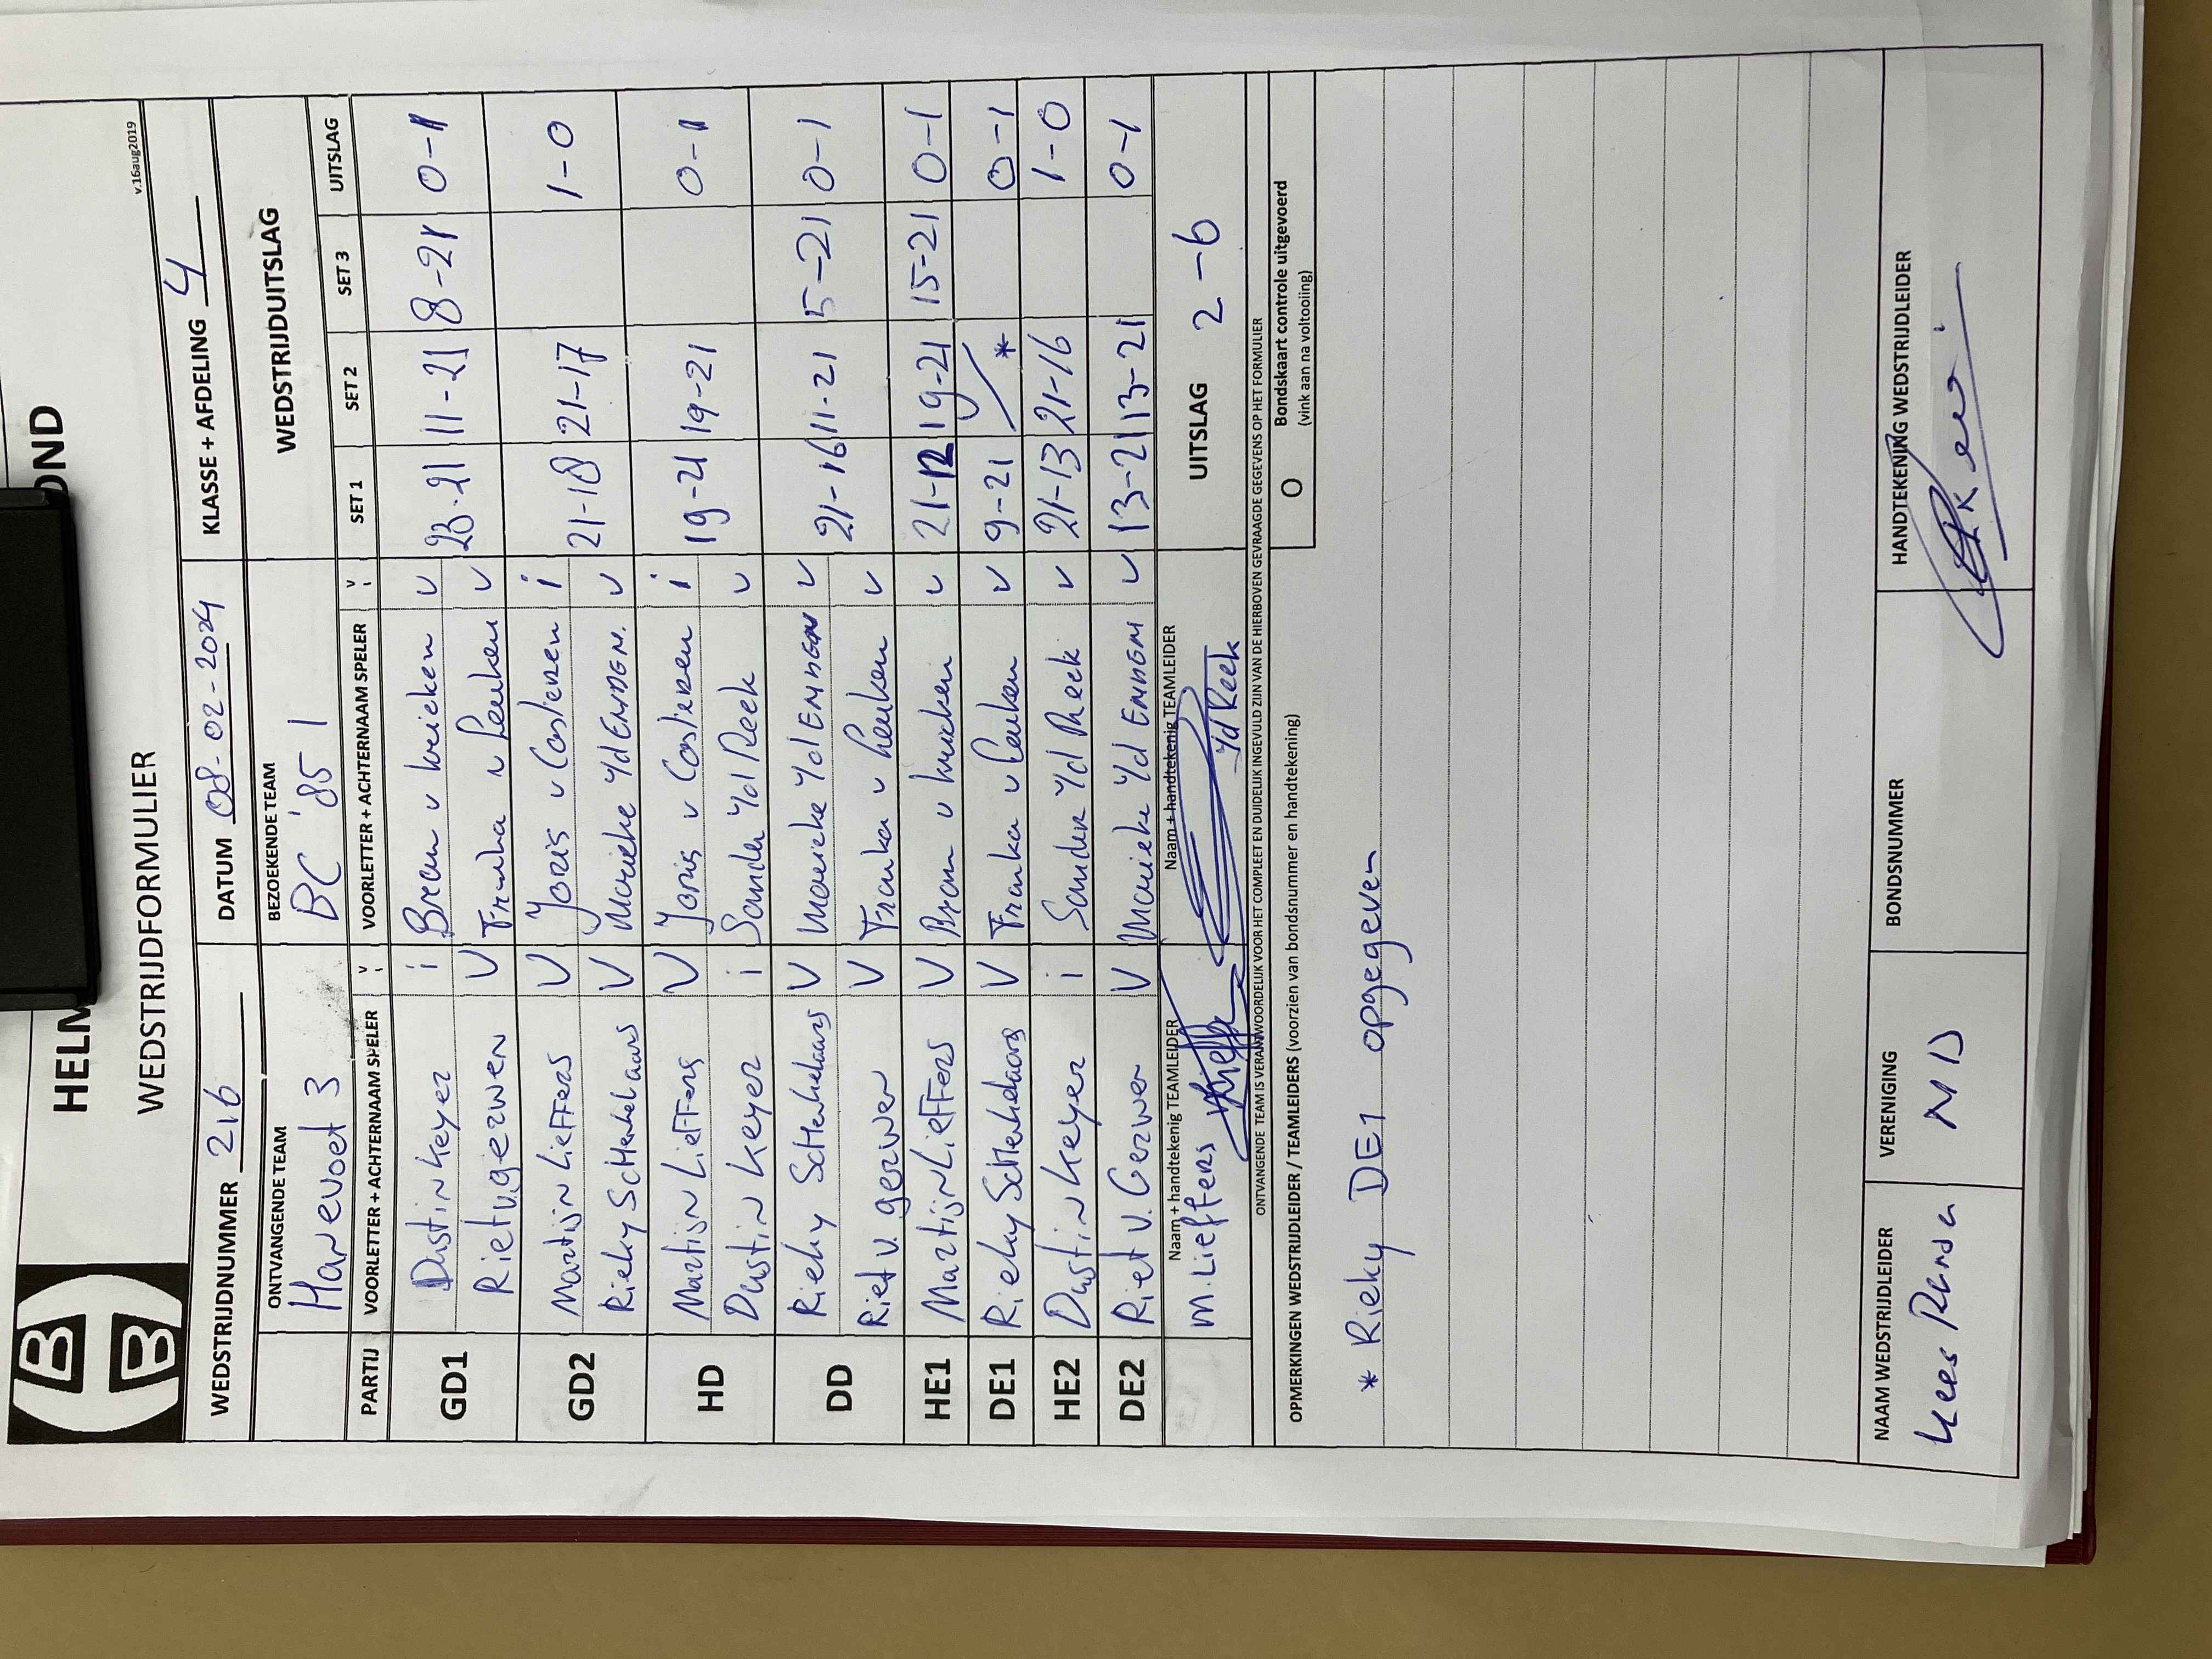 HELM OND
B
B
WEDSTRIJDFORMULIER
v.16aug2019
WEDSTRIJDNUMMER 216 DATUM 08-02-2024 KLASSE + AFDELING 4
ONTVANGENDE TEAM BEZOEKENDE TEAM WEDSTRIJDUITSLAG
Hanevoet 3 BC '85-1
PARTIJ VOORLETTER + ACHTERNAAM SPELER v i VOORLETTER + ACHTERNAAM SPELER v i SET 1 SET 2 SET 3 UITSLAG
GD1 Dustin Keyer i Bram v Kricken v 23-21 11-21 8-21 0-1
Riet v. gerwen V Franka v Leuken v
GD2 Martijn Lieffers V Joris v Casteren i 21-18 21-17 1-0
Rieky Schenkelaars V Marieke vd EMDEN. v
HD Martijn Lieffers V Joris v Casteren i 19-21 19-21 0-1
Dustin Keyer i Sander vd Reek v
DD Rieky Schenkelaars V Marieke vd EMDEN v 21-16 11-21 5-21 0-1
Riet v. gerwen V Franka v Leuken v
HE1 Martijn Lieffers V Bram v Kricken v 21-12 19-21 15-21 0-1
DE1 Rieky Schenkelaars V Franka v Leuken v 9-21 / * 0-1
HE2 Dustin Keyer i Sander vd Reek v 21-13 21-16 1-0
DE2 Riet v. Gerwen V Marieke vd EMDEN v 13-21 13-21 0-1
Naam + handtekenig TEAMLEIDER Naam + handtekenig TEAMLEIDER UITSLAG 2-6
M. Lieffers vd Reek
ONTVANGENDE TEAM IS VERANTWOORDELIJK VOOR HET COMPLEET EN DUIDELIJK INGEVULD ZIJN VAN DE HIERBOVEN GEVRAAGDE GEGEVENS OP HET FORMULIER
OPMERKINGEN WEDSTRIJDLEIDER / TEAMLEIDERS (voorzien van bondsnummer en handtekening) O Bondskaart controle uitgevoerd
(vink aan na voltooiing)
* Rieky DE1 opgegeven
NAAM WEDSTRIJDLEIDER VERENIGING BONDSNUMMER HANDTEKENING WEDSTRIJDLEIDER
Kees